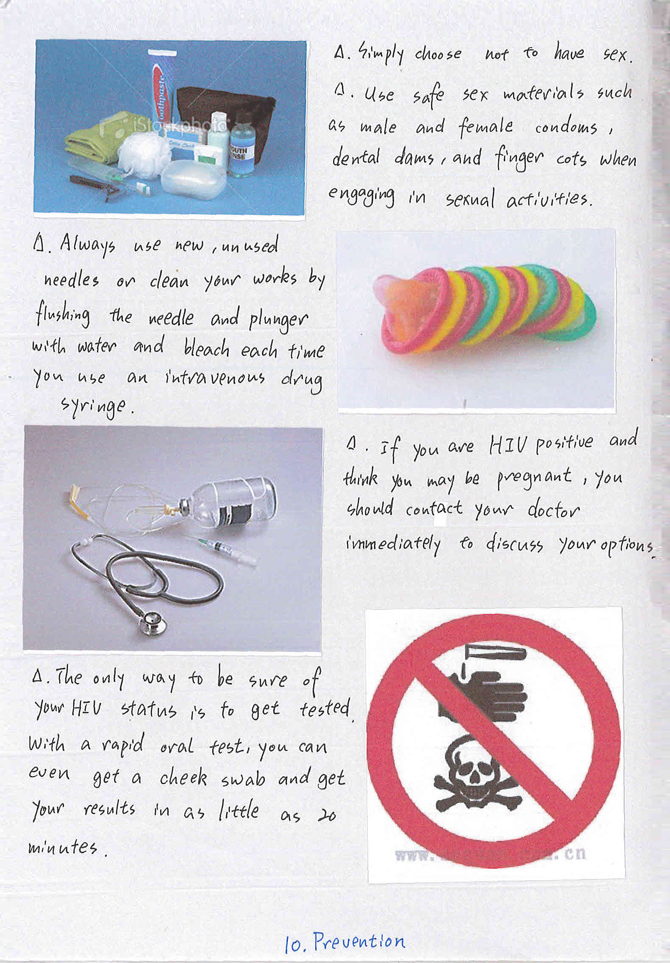 Δ. Simply choose not to have sex.
Δ. Use safe sex materials such
as male and female condoms,
dental dams, and finger cots when
engaging in sexual activities.
Δ. Always use new, unused
needles or clean your works by
flushing the needle and plunger
with water and bleach each time
you use an intravenous drug
syringe.
Δ. If you are HIV positive and
think you may be pregnant, you
should contact your doctor
immediately to discuss your options.
Δ. The only way to be sure of
your HIV status is to get tested.
With a rapid oral test, you can
even get a cheek swab and get
your results in as little as 20
minutes.
10. Prevention
toothpaste
iStockphoto
www.
.cn